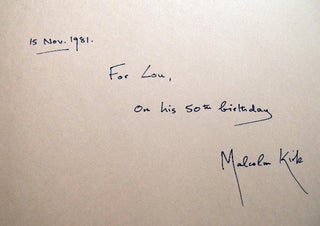 15 Nov. 1981.
For Lou,
On his 50th birthday
Malcolm Kirk